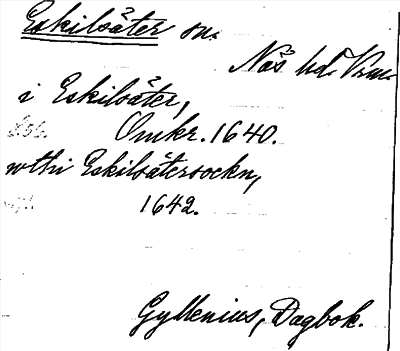 Eskilsäter sn.
Näs hd. Vrml.
i Eskilsäter,
Omkr. 1640.
wthi Eskilsätersockn,
1642.
Gyllenius, Dagbok.